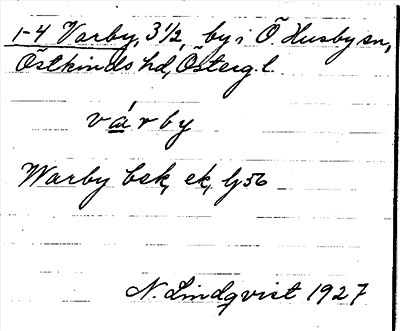 1-4 Varby, 3 1/2, by i Ö. Husby sn,
Östkinds hd, Östergl.
várby
Warby bsk, ek, Gj 56
N. Lindqvist 1927